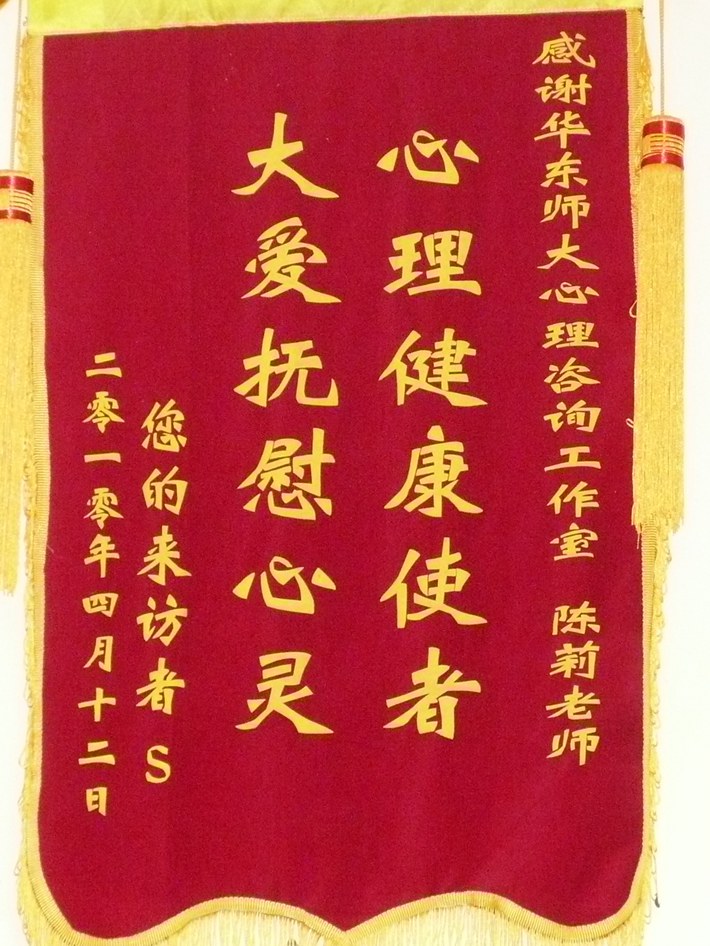 感谢华东师大心理咨询工作室 陈莉老师
心理健康使者
大爱抚慰心灵
您的来访者S
二零一零年四月十二日